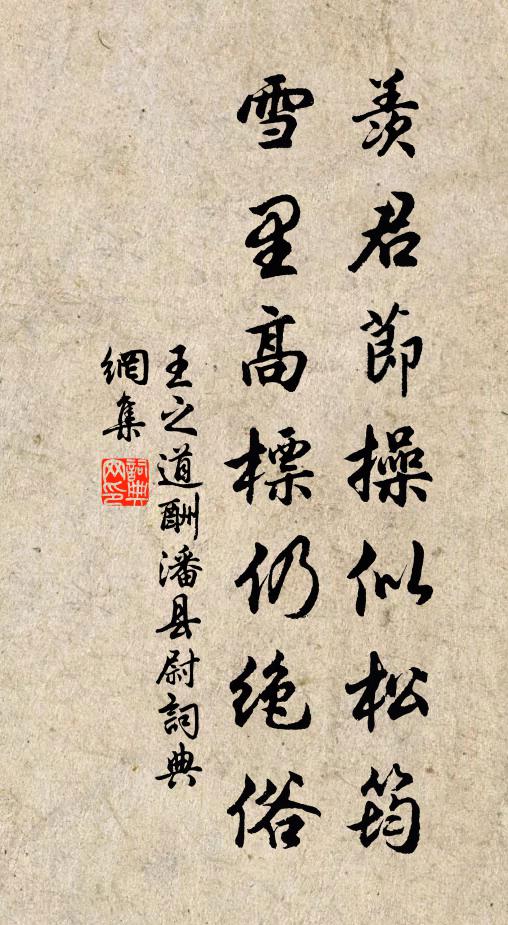 羨君節操似松筠
雪里高標仍絶俗
王之道酬潘县尉詞典
網集
詞典網印